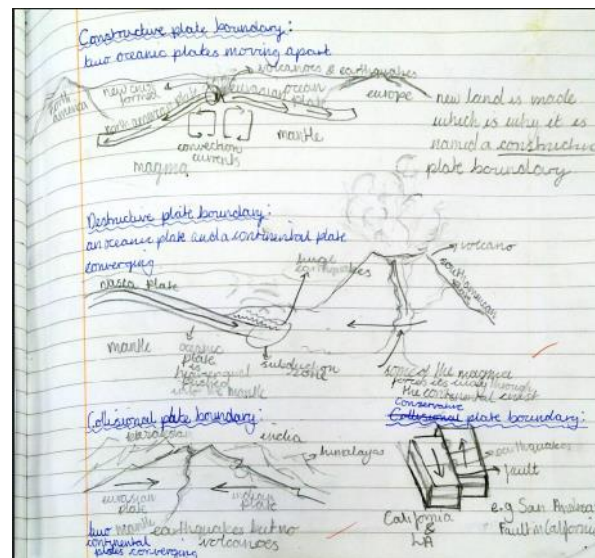 Constructive plate boundary:
two oceanic plates moving apart
volcanoes & earthquakes
new crust
formed
north
america
north american plate
eurasian ocean
plate
europe
convection
currents
mantle
magma
new land is made
which is why it is
named a constructive
plate boundary
Destructive plate boundary:
an oceanic plate and a continental plate
converging
earthquakes
volcano
nasca plate
mantle
oceanic
plate
is
pushed
into the mantle
subduction
zone
some of the magma
forces its way through
the continental crust
Collisional plate boundary:
india
himalayas
eurasian
plate
indian
plate
mantle
two
continental
plates converging
earthquakes but no
volcanoes
Conservative
Collisional plate boundary:
earthquakes
fault
California
&
LA
e.g San Andreas
Fault in California